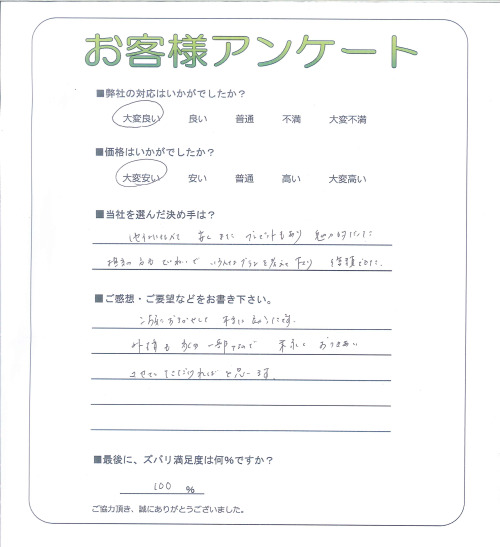 お客様アンケート
■弊社の対応はいかがでしたか？
大変良い 良い 普通 不満 大変不満
■価格はいかがでしたか？
大変安い 安い 普通 高い 大変高い
■当社を選んだ決め手は？
プレゼントもあり
担当の方も ていねいで いろんなプランを 下さり 信頼
■ご感想・ご要望などをお書き下さい。
おまかせして 本当に よかったです。
外構も 家の一部なので 末永く おつきあい
させていただければ と思います。
■最後に、ズバリ満足度は何％ですか？
100 ％
ご協力頂き、誠にありがとうございました。